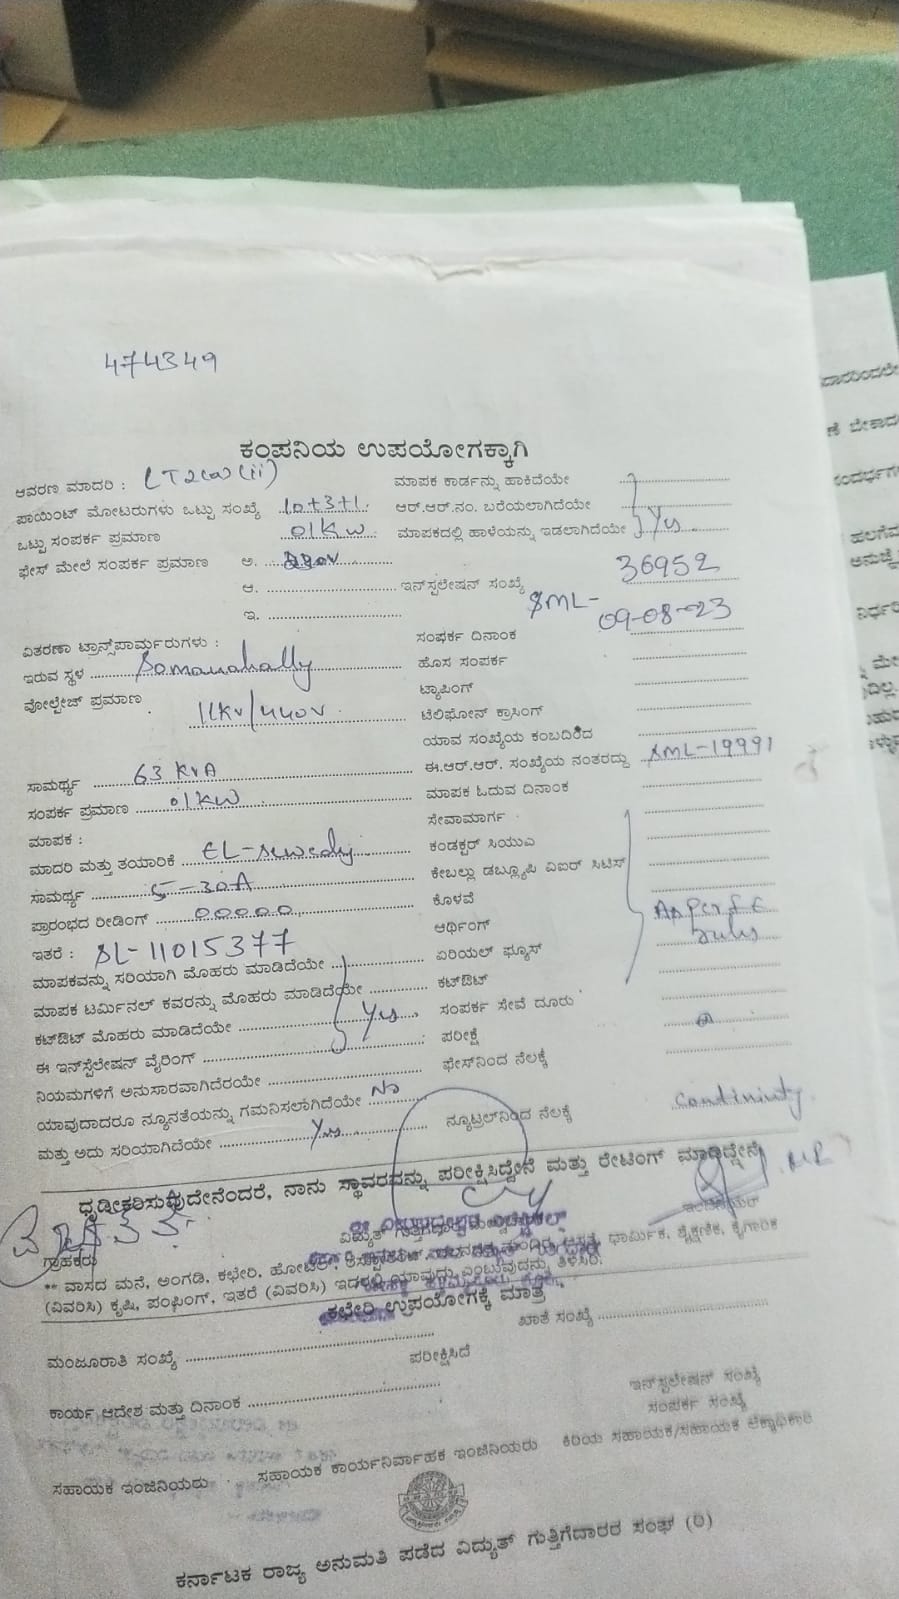 474349
ಕಂಪನಿಯ ಉಪಯೋಗಕ್ಕಾಗಿ
ಆವರಣ ಮಾದರಿ : LT2(a)(ii) ಮಾಪಕ ಕಾರ್ಡನ್ನು ಹಾಕಿದೆಯೇ
ಪಾಯಿಂಟ್ ಮೋಟರುಗಳು ಒಟ್ಟು ಸಂಖ್ಯೆ 10+3+1 ಆರ್.ಆರ್.ನಂ. ಬರೆಯಲಾಗಿದೆಯೇ
ಒಟ್ಟು ಸಂಪರ್ಕ ಪ್ರಮಾಣ 01KW ಮಾಪಕದಲ್ಲಿ ಹಾಳೆಯನ್ನು ಇಡಲಾಗಿದೆಯೇ Yes
ಫೇಸ್ ಮೇಲೆ ಸಂಪರ್ಕ ಪ್ರಮಾಣ ಅ.
ಆ. ಇನ್‌ಸ್ಪಲೇಷನ್ ಸಂಖ್ಯೆ SML- 36952
ಇ.
ವಿತರಣಾ ಟ್ರಾನ್ಸ್‌ಪಾರ್ಮ್ರರುಗಳು : ಸಂಪರ್ಕ ದಿನಾಂಕ 09-08-23
ಇರುವ ಸ್ಥಳ Somanahally ಹೊಸ ಸಂಪರ್ಕ
ವೋಲ್ಟೇಜ್ ಪ್ರಮಾಣ 11KV/440V ಟ್ಯಾಪಿಂಗ್
ಟೆಲಿಫೋನ್ ಕ್ರಾಸಿಂಗ್
ಯಾವ ಸಂಖ್ಯೆಯ ಕಂಬದಿಂದ
ಸಾಮರ್ಥ್ಯ 63 KVA ಈ.ಆರ್.ಆರ್. ಸಂಖ್ಯೆಯ ನಂತರದ್ದು SML-19991
ಸಂಪರ್ಕ ಪ್ರಮಾಣ 01KW ಮಾಪಕ ಓದುವ ದಿನಾಂಕ
ಮಾಪಕ : ಸೇವಾಮಾರ್ಗ
ಮಾದರಿ ಮತ್ತು ತಯಾರಿಕೆ EL-sewedy ಕಂಡಕ್ಟರ್ ಸಿಯುಎ
ಸಾಮರ್ಥ್ಯ 5-30A ಕೇಬಲ್ಲು ಡಬ್ಲ್ಯೂಪಿ ವಿಐರ್ ಸಿಟಿಸ್
ಪ್ರಾರಂಭದ ರೀಡಿಂಗ್ 00000 ಕೊಳವೆ
ಇತರೆ : SL-11015377 ಆರ್ಥಿಂಗ್
ಮಾಪಕವನ್ನು ಸರಿಯಾಗಿ ಮೊಹರು ಮಾಡಿದೆಯೇ ಏರಿಯಲ್ ಫ್ಯೂಸ್
ಮಾಪಕ ಟರ್ಮಿನಲ್ ಕವರನ್ನು ಮೊಹರು ಮಾಡಿದೆಯೇ ಕಟ್‌ಔಟ್
ಕಟ್‌ಔಟ್ ಮೊಹರು ಮಾಡಿದೆಯೇ Yes ಸಂಪರ್ಕ ಸೇವೆ ದೂರು
ಈ ಇನ್‌ಸ್ಪೆಲೇಷನ್ ವೈರಿಂಗ್ ಪರೀಕ್ಷೆ
ನಿಯಮಗಳಿಗೆ ಅನುಸಾರವಾಗಿದೆರಯೇ ಫೇಸ್‌ನಿಂದ ನೆಲಕ್ಕೆ
ಯಾವುದಾದರೂ ನ್ಯೂನತೆಯನ್ನು ಗಮನಿಸಲಾಗಿದೆಯೇ No
ಮತ್ತು ಅದು ಸರಿಯಾಗಿದೆಯೇ Yes ನ್ಯೂಟ್ರಲ್‌ನಿಂದ ನೆಲಕ್ಕೆ
ಧೃಡೀಕರಿಸುವುದೇನೆಂದರೆ, ನಾನು ಸ್ಥಾವರವನ್ನು ಪರೀಕ್ಷಿಸಿದ್ದೇನೆ ಮತ್ತು ರೇಟಿಂಗ್ ಮಾಡಿದ್ದೇನೆ
ಗ್ರಾಹಕರು
** ವಾಸದ ಮನೆ, ಅಂಗಡಿ, ಕಛೇರಿ, ಹೋಟೆಲ್, ಧಾರ್ಮಿಕ, ಶೈಕ್ಷಣಿಕ, ಕೈಗಾರಿಕ
(ವಿವರಿಸಿ) ಕೃಷಿ, ಪಂಫಿಂಗ್, ಇತರೆ (ವಿವರಿಸಿ) ಇದರಲ್ಲಿ ಯಾವುದು ಎಂಬುವುದನ್ನು ತಿಳಿಸಿರಿ.
ಕಛೇರಿ ಉಪಯೋಗಕ್ಕೆ ಮಾತ್ರ
ಮಂಜೂರಾತಿ ಸಂಖ್ಯೆ ಖಾತೆ ಸಂಖ್ಯೆ
ಪರೀಕ್ಷಿಸಿದೆ
ಕಾರ್ಯ ಆದೇಶ ಮತ್ತು ದಿನಾಂಕ ಇನ್‌ಸ್ಪಲೇಷನ್ ಸಂಖ್ಯೆ
ಸಂಪರ್ಕ ಸಂಖ್ಯೆ
ಸಹಾಯಕ ಇಂಜಿನಿಯರು ಸಹಾಯಕ ಕಾರ್ಯನಿರ್ವಾಹಕ ಇಂಜಿನಿಯರು ಕಿರಿಯ ಸಹಾಯಕ/ಸಹಾಯಕ ಲೆಕ್ಕಾಧಿಕಾರಿ
ಕರ್ನಾಟಕ ರಾಜ್ಯ ಅನುಮತಿ ಪಡೆದ ವಿದ್ಯುತ್ ಗುತ್ತಿಗೆದಾರರ ಸಂಘ (ರಿ)